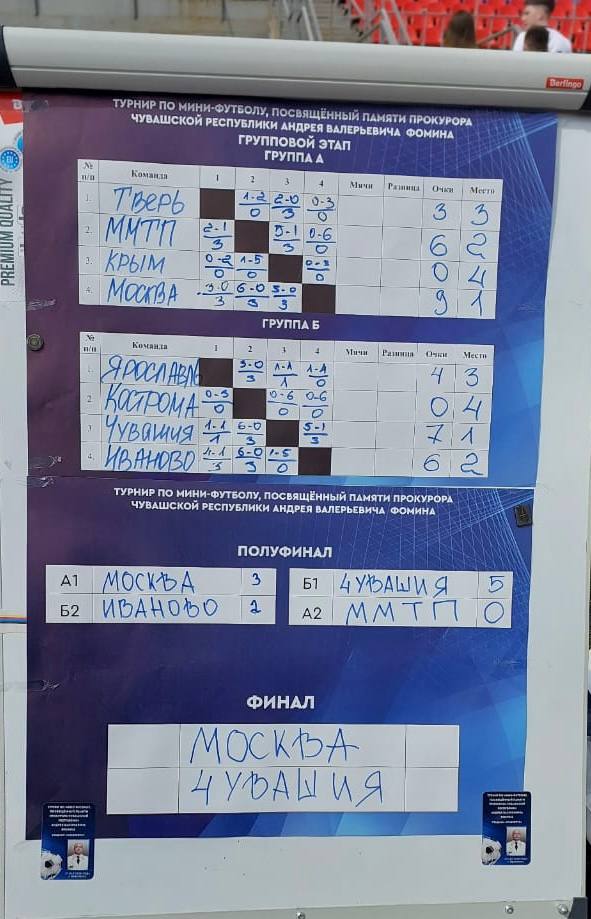 Berlingo
PREMIUM QUALITY
ТУРНИР ПО МИНИ-ФУТБОЛУ, ПОСВЯЩЁННЫЙ ПАМЯТИ ПРОКУРОРА
ЧУВАШСКОЙ РЕСПУБЛИКИ АНДРЕЯ ВАЛЕРЬЕВИЧА ФОМИНА
ГРУППОВОЙ ЭТАП
ГРУППА А
№ п/п Команда 1 2 3 4 Мячи Разница Очки Место
1. ТВЕРЬ 1-2 2-0 0-3 3 3
0 3 0
2. ММТП 2-1 5-1 0-6 6 2
3 3 0
3. КРЫМ 0-2 1-5 0-3 0 4
0 0 0
4. МОСКВА 3-0 6-0 3-0 9 1
3 3 3
ГРУППА Б
№ п/п Команда 1 2 3 4 Мячи Разница Очки Место
1. ЯРОСЛАВЛЬ 3-0 1-1 1-4 4 3
3 1 0
2. КОСТРОМА 0-3 0-6 0-6 0 4
0 0 0
3. ЧУВАШИЯ 1-1 6-0 5-1 7 1
1 3 3
4. ИВАНОВО 4-1 6-0 1-5 6 2
3 3 0
ТУРНИР ПО МИНИ-ФУТБОЛУ, ПОСВЯЩЁННЫЙ ПАМЯТИ ПРОКУРОРА
ЧУВАШСКОЙ РЕСПУБЛИКИ АНДРЕЯ ВАЛЕРЬЕВИЧА ФОМИНА
ПОЛУФИНАЛ
А1 МОСКВА 3 Б1 ЧУВАШИЯ 5
Б2 ИВАНОВО 2 А2 ММТП 0
ФИНАЛ
МОСКВА
ЧУВАШИЯ